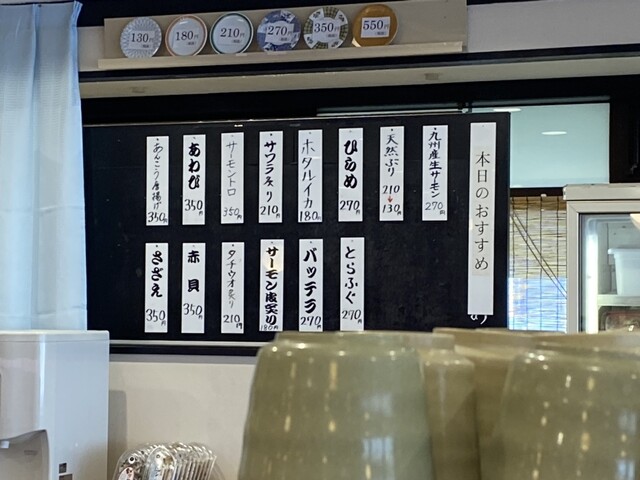 130円
180円
210円
270円
350円
550円
本日のおすすめ
九州産生サーモン 270円
天然ぶり 210→130円
ひらめ 270円
ホタルイカ 180円
サワラ炙り 210円
サーモントロ 350円
あわび 350円
あんこう唐揚げ 350円
とらふぐ 270円
バッテラ 270円
サーモン皮炙り 180円
タチウオ炙り 210円
赤貝 350円
さざえ 350円